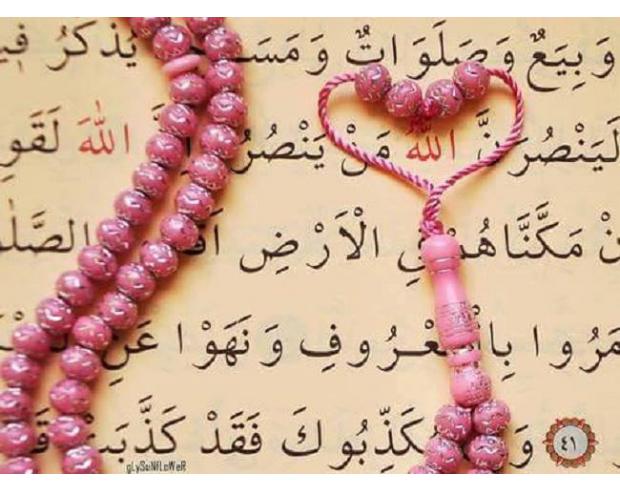 وَبِيَعٌ وَصَلَوَاتٌ وَمَسَـ يُذْكَرُ فِيـ
لَيَنْصُرَنَّ اللّٰهُ مَنْ يَنْصُرُ اللّٰهَ لَقَوِ
ـنْ مَكَّنَّاهُمْ فِي الْاَرْضِ اَقَا الصَّلٰو
مَرُوا بِالْمَعْرُوفِ وَنَهَوْا عَنِ
٤١ وَ ـكَذِّبُوكَ فَقَدْ كَذَّبَتْ قَـ
gLySuNfLoWeR